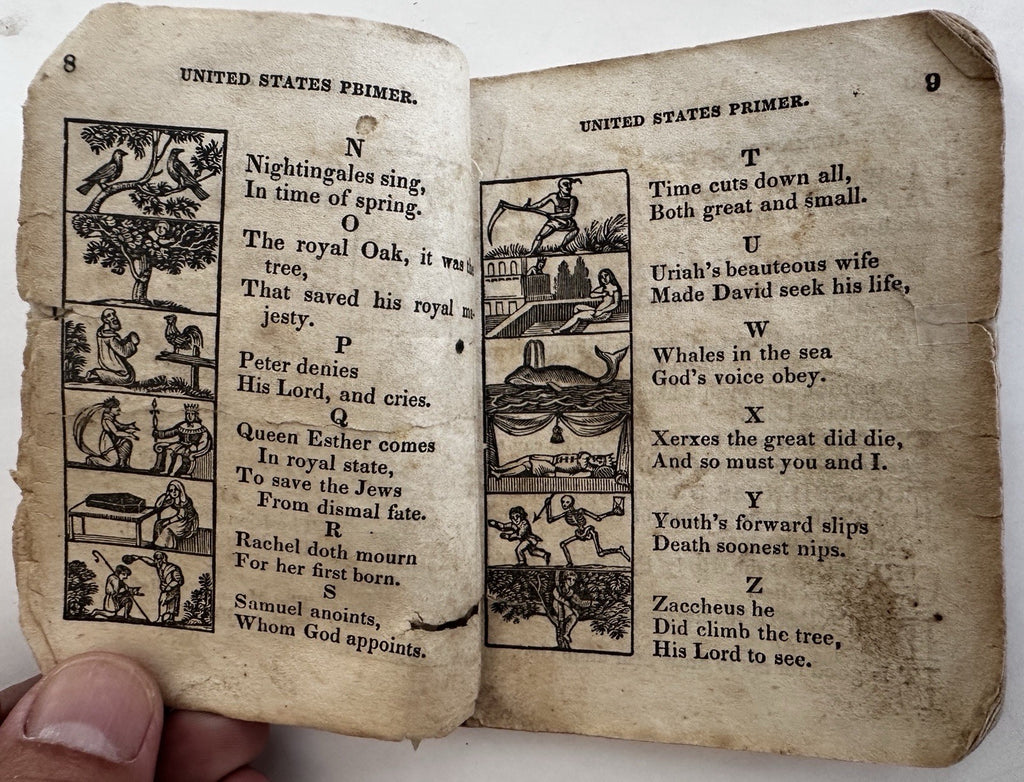 8
UNITED STATES PBIMER.
N
Nightingales sing,
In time of spring.
O
The royal Oak, it was the
tree,
That saved his royal ma-
jesty.
P
Peter denies
His Lord, and cries.
Q
Queen Esther comes
In royal state,
To save the Jews
From dismal fate.
R
Rachel doth mourn
For her first born.
S
Samuel anoints,
Whom God appoints.
9
UNITED STATES PRIMER.
T
Time cuts down all,
Both great and small.
U
Uriah's beauteous wife
Made David seek his life,
W
Whales in the sea
God's voice obey.
X
Xerxes the great did die,
And so must you and I.
Y
Youth's forward slips
Death soonest nips.
Z
Zaccheus he
Did climb the tree,
His Lord to see.